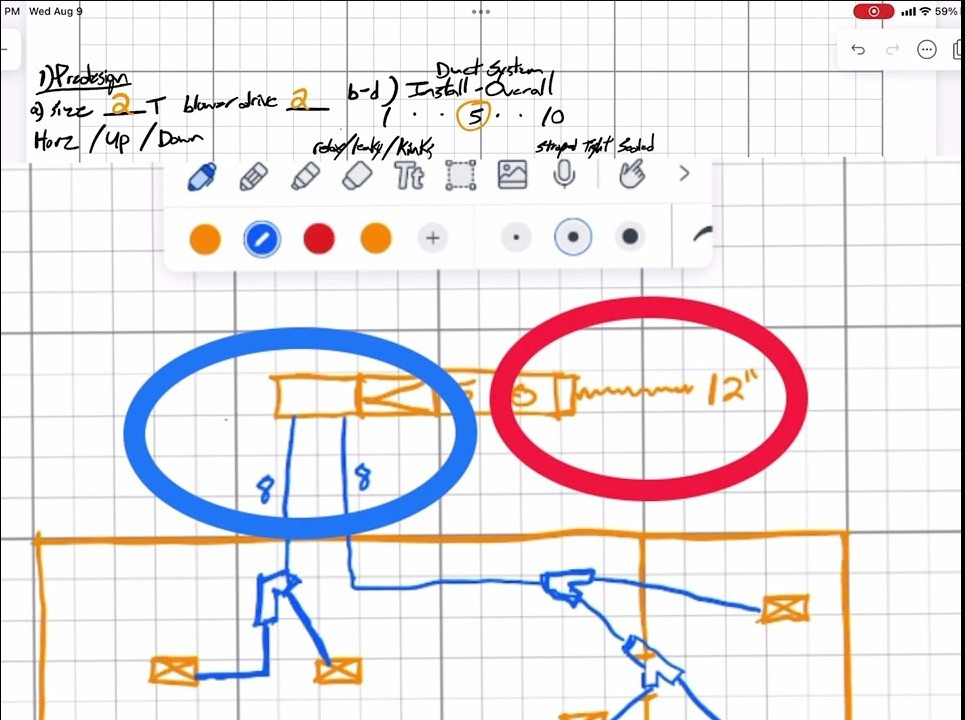 PM Wed Aug 9
59%
1) Predesign
a) size 2 T blower drive 2
Horz / Up / Down
Duct System
b-d) Install - Overall
1 . . 5 . . 10
/leaky/Kinks
Tight Sealed
Tt
12"
8 8